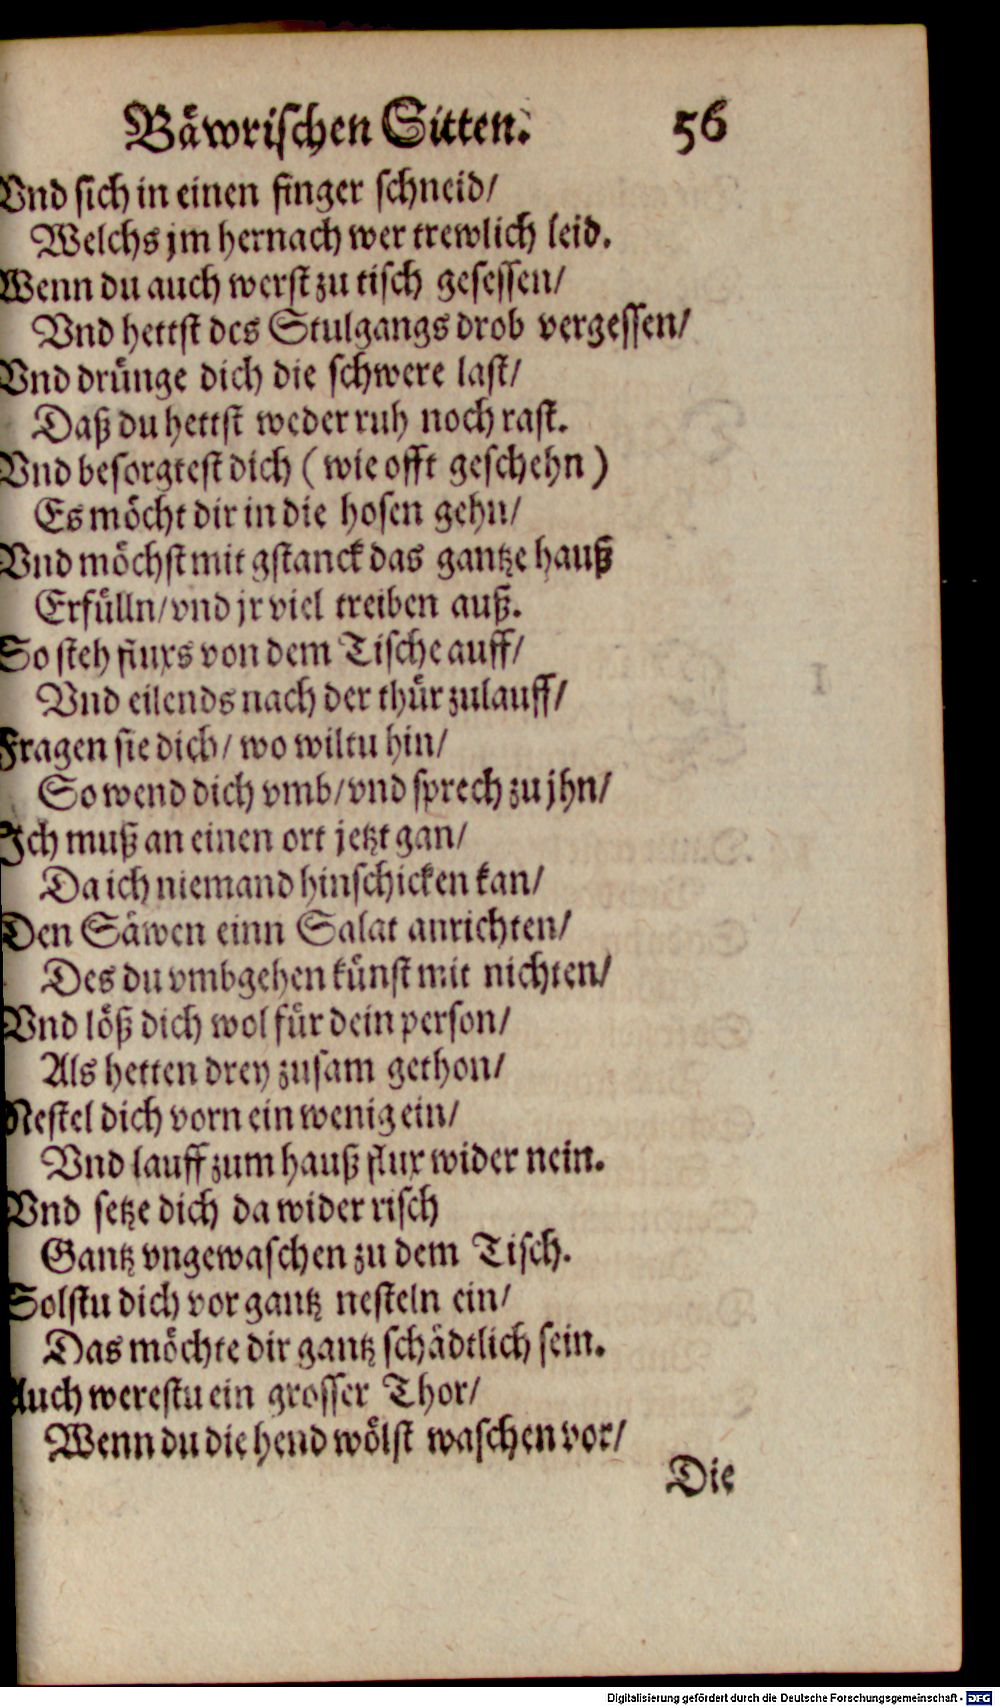 Bäwrischen Sitten. 56
Vnd sich in einen finger schneid/
Welchs jm hernach wer trewlich leid.
Wenn du auch werst zu tisch gesessen/
Vnd hettst des Stulgangs drob vergessen/
Vnd drünge dich die schwere last/
Daß du hettst weder ruh noch rast.
Vnd besorgtest dich (wie offt geschehn)
Es möcht dir in die hosen gehn/
Vnd möchst mit gstanck das gantze hauß
Erfülln/vnd jr viel treiben auß.
So steh fluxs von dem Tische auff/
Vnd eilends nach der thür zulauff/
Fragen sie dich/ wo wiltu hin/
So wend dich vmb/vnd sprech zu jhn/
Ich muß an einen ort jetzt gan/
Da ich niemand hinschicken kan/
Den Säwen einn Salat anrichten/
Des du vmbgehen künst mit nichten/
Vnd löß dich wol für dein person/
Als hetten drey zusam gethon/
Nestel dich vorn ein wenig ein/
Vnd lauff zum hauß flux wider nein.
Vnd setze dich da wider risch
Gantz vngewaschen zu dem Tisch.
Solstu dich vor gantz nesteln ein/
Das möchte dir gantz schädtlich sein.
Auch werestu ein grosser Thor/
Wenn du die hend wölst waschen vor/
Die
Digitalisierung gefördert durch die Deutsche Forschungsgemeinschaft - DFG